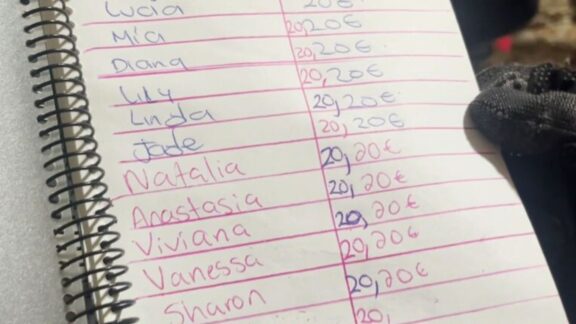 Lucia 20€
Mia 20,20€
Diana 20,20€
Lily 20,20€
Linda 20,20€
Jade 20,20€
Natalia 20,20€
Anastasia 20,20€
Viviana 20,20€
Vanessa 20,20€
Sharon 20,20€
20,